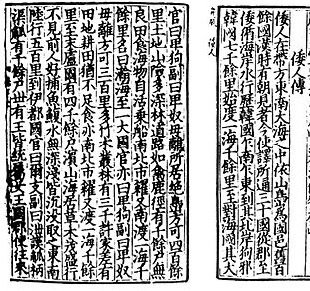 倭人傳
倭人在帶方東南大海之中依山㠀爲國邑舊百
餘國漢時有朝見者今使譯所通三十國從郡至
倭循海岸水行歷韓國乍南乍東到其北岸狗邪
韓國七千餘里始度一海千餘里至對海國其大
官曰卑狗副曰卑奴母離所居絶㠀方可四百餘
里土地山險多深林道路如禽鹿徑有千餘戶無
良田食海物自活乗船南北市糴又南渡一海千
餘里名曰瀚海至一大國官亦曰卑狗副曰卑奴
母離方可三百里多竹木叢林有三千許家差有
田地耕田猶不足食亦南北市糴又渡一海千餘
里至末盧國有四千餘戶濵山海居草木茂盛行
不見前人好捕魚鰒水無深淺皆沈没取之東南
陸行五百里到伊都國官曰爾支副曰泄謨觚柄
渠觚有千餘戶丗有王皆統屬女王國郡使徃來